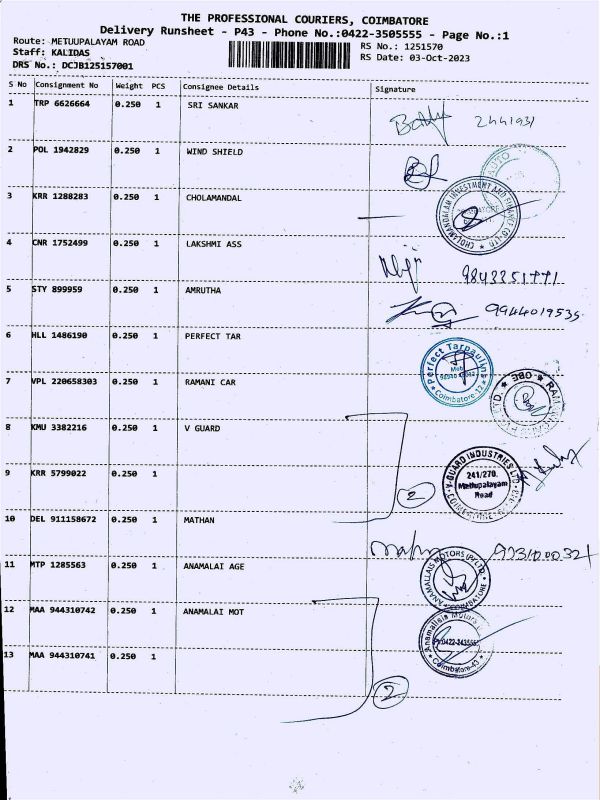 THE PROFESSIONAL COURIERS, COIMBATORE
Delivery Runsheet - P43 - Phone No.:0422-3505555 - Page No.:1
Route: METUUPALAYAM ROAD
RS No.: 1251570
Staff: KALIDAS
RS Date: 03-Oct-2023
DRS No.: DCJB125157001
S No Consignment No Weight PCS Consignee Details Signature
1 TRP 6626664 0.250 1 SRI SANKAR
2441931
2 POL 1942829 0.250 1 WIND SHIELD
AUTO
3 KRR 1288283 0.250 1 CHOLAMANDAL
CHOLAMANDALAM INVESTMENT AND FINANCE CO LTD
4 CNR 1752499 0.250 1 LAKSHMI ASS
5 STY 899959 0.250 1 AMRUTHA
9944019535
6 HLL 1486190 0.250 1 PERFECT TAR
Perfect Tarpaulin
Coimbatore-12
7 VPL 220658303 0.250 1 RAMANI CAR
8 KMU 3382216 0.250 1 V GUARD
V-GUARD INDUSTRIES LTD
241/270.
Mettupalayam
Road
9 KRR 5799022 0.250 1
2
10 DEL 911158672 0.250 1 MATHAN
11 MTP 1285563 0.250 1 ANAMALAI AGE
ANAMALLAIS MOTORS (P) LTD
COIMBATORE
12 MAA 944310742 0.250 1 ANAMALAI MOT
Anamallais Motors
Coimbatore-43
13 MAA 944310741 0.250 1
2